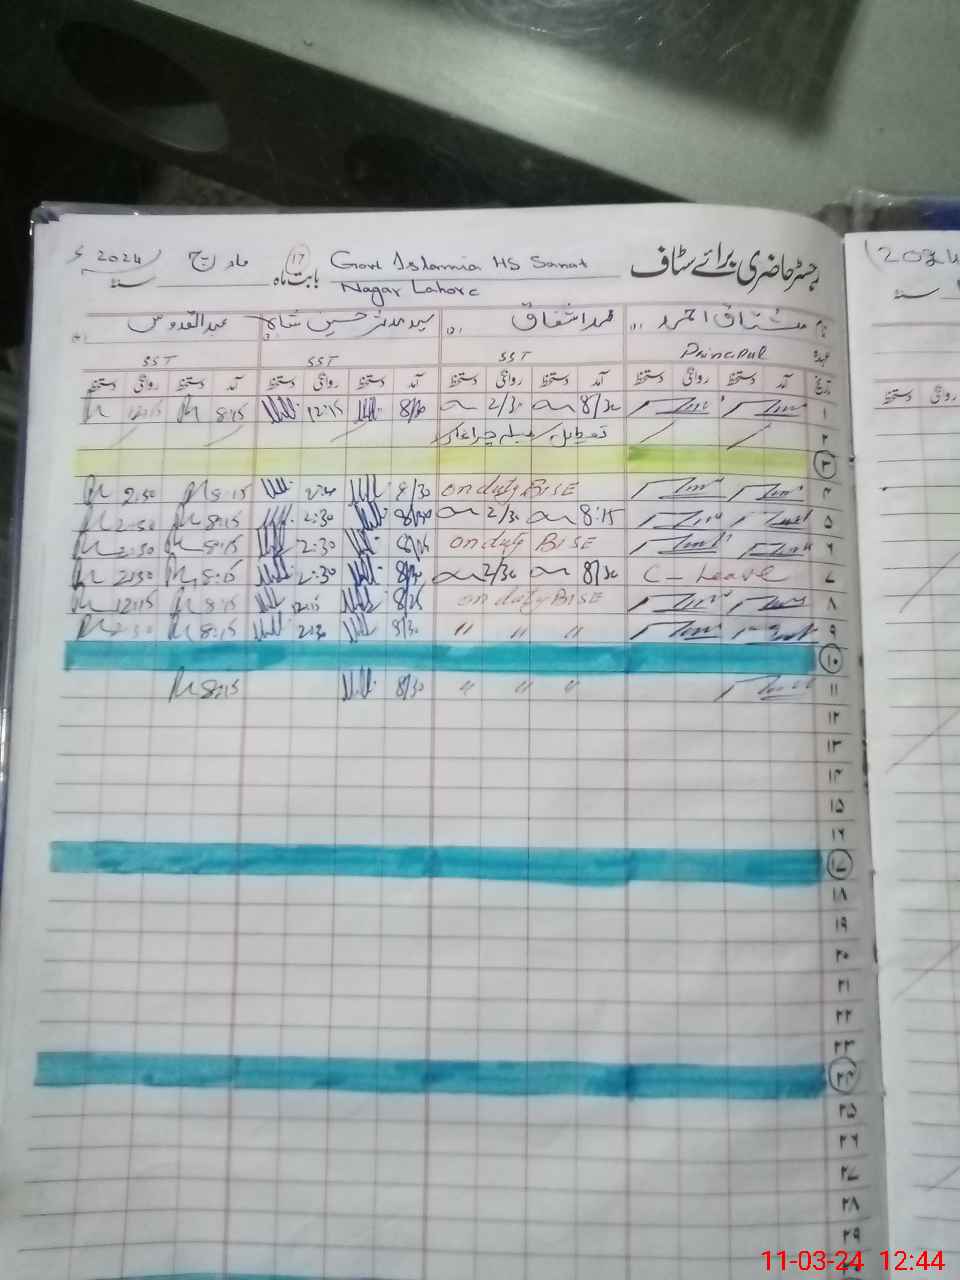 رجسٹر حاضری برائے سٹاف Govt Islamia HS Sanat بابت ماہ 17 مارچ سنہ 2024ء
Nagar Lahore
نام مشتاق احمد محمد اشفاق سید مدثر حسین شاہ عبدالقدوس
عہدہ Principal SST SST SST
تاریخ آمد دستخط روانگی دستخط آمد دستخط روانگی دستخط آمد دستخط روانگی دستخط آمد دستخط روانگی دستخط
۱ 8/30 2/30 8/30 12:15 8:15 12:15
۲ تعطیل میلہ چراغاں
۳
۴ on duty BISE 8/30 2:30 8:15 2:30
۵ 8:15 2/30 8/30 2:30 8:15 2:30
۶ on duty BISE 8/25 2:30 8:15 2:30
۷ C-Leave 8/30 2/30 8/30 2:30 8:15 2:30
۸ on duty BISE 8/25 12:15 8:15 12:15
۹ " " " 8/30 2:30 8:15 2:30
۱۰
۱۱ " " " 8/30 8:15
۱۲
۱۳
۱۴
۱۵
۱۶
۱۷
۱۸
۱۹
۲۰
۲۱
۲۲
۲۳
۲۴
۲۵
۲۶
۲۷
۲۸
۲۹
(2024
سنہ
دستخط روانگی
11-03-24 12:44